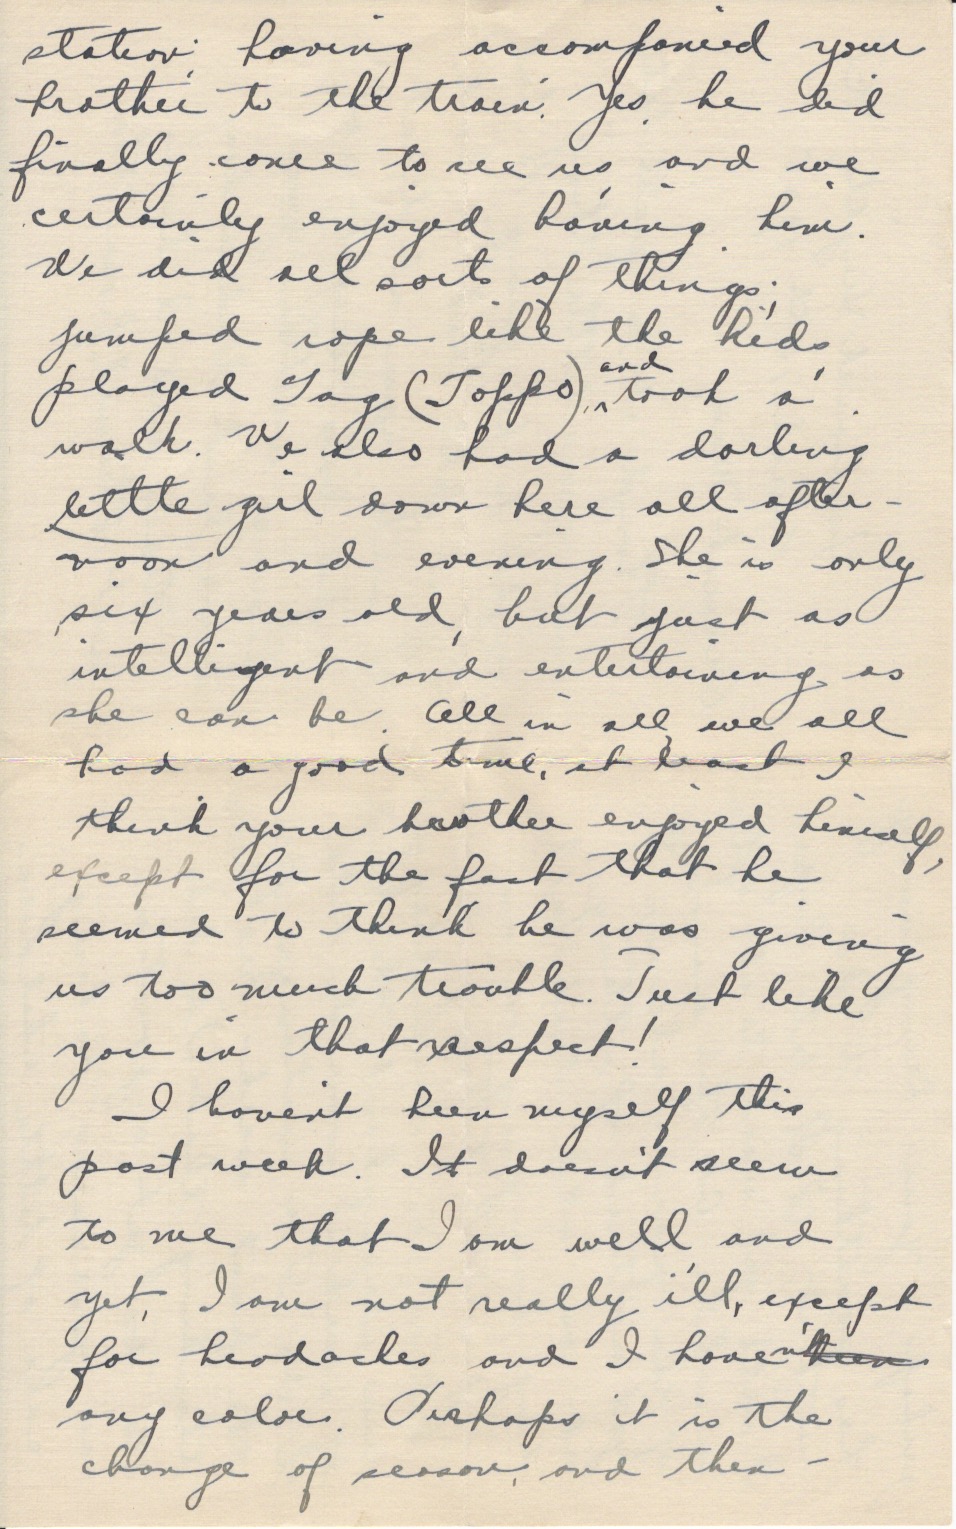 station, having accompanied your
brother to the train. Yes, he did
finally come to see us, and we
certainly enjoyed having him.
We did all sorts of things;
jumped rope like the kids,
played Tag (Toppo), and took a
walk. We also had a darling
little girl down here all after-
noon and evening. She is only
six years old, but just as
intelligent and entertaining as
she can be. All in all, we all
had a good time, at least I
think your brother enjoyed himself,
except for the fact that he
seemed to think he was giving
us too much trouble. Just like
you in that respect!
I haven't been myself this
past week. It doesn't seem
to me that I am well and
yet, I am not really ill, except
for headaches and I haven't been
any color. Perhaps it is the
change of season, and then -